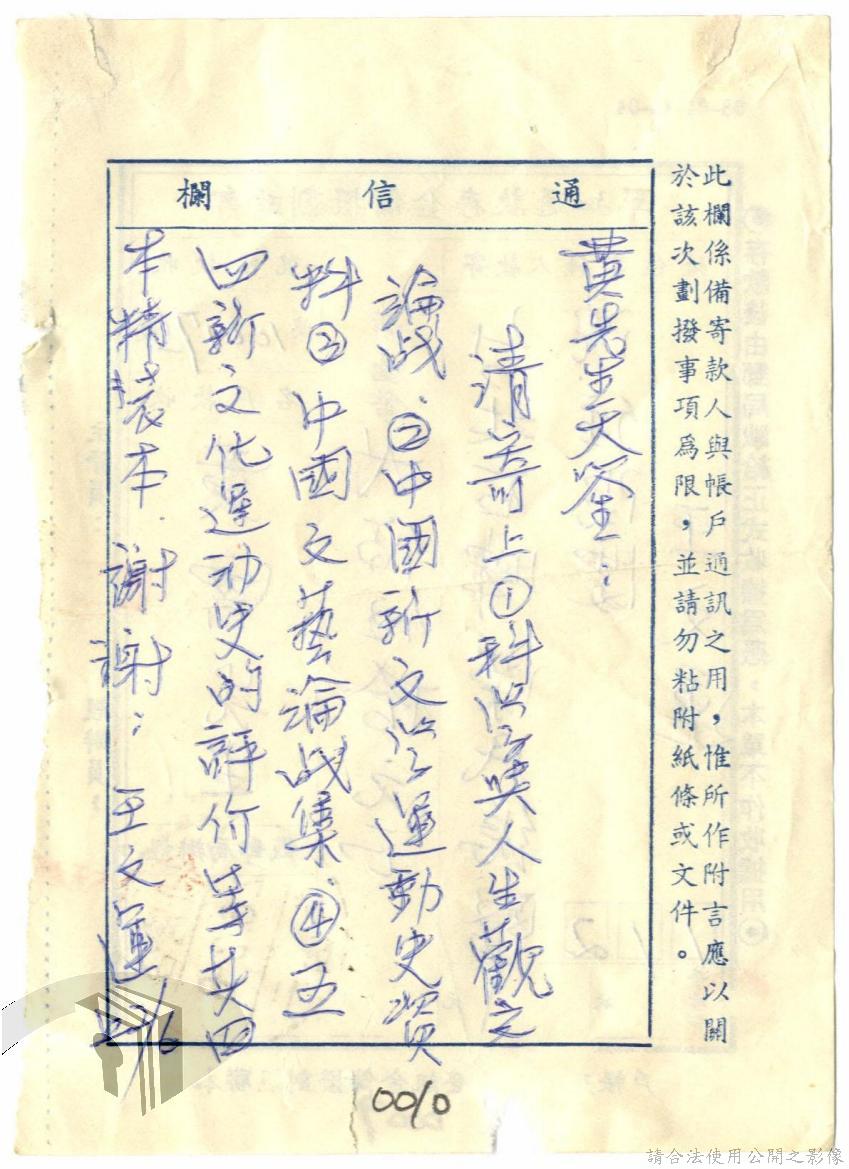 此欄係備寄款人與帳戶通訊之用，惟所作附言應以關
於該次劃撥事項為限，並請勿粘附紙條或文件。
通信欄
黃先生天鑒：
請寄上①科學與人生觀之
論战.②中國新文学運動史資
料③中國文藝論战集.④五
四新文化運动史的評价等共四
本精裝本.謝謝：王文運
0010
請合法使用公開之影像